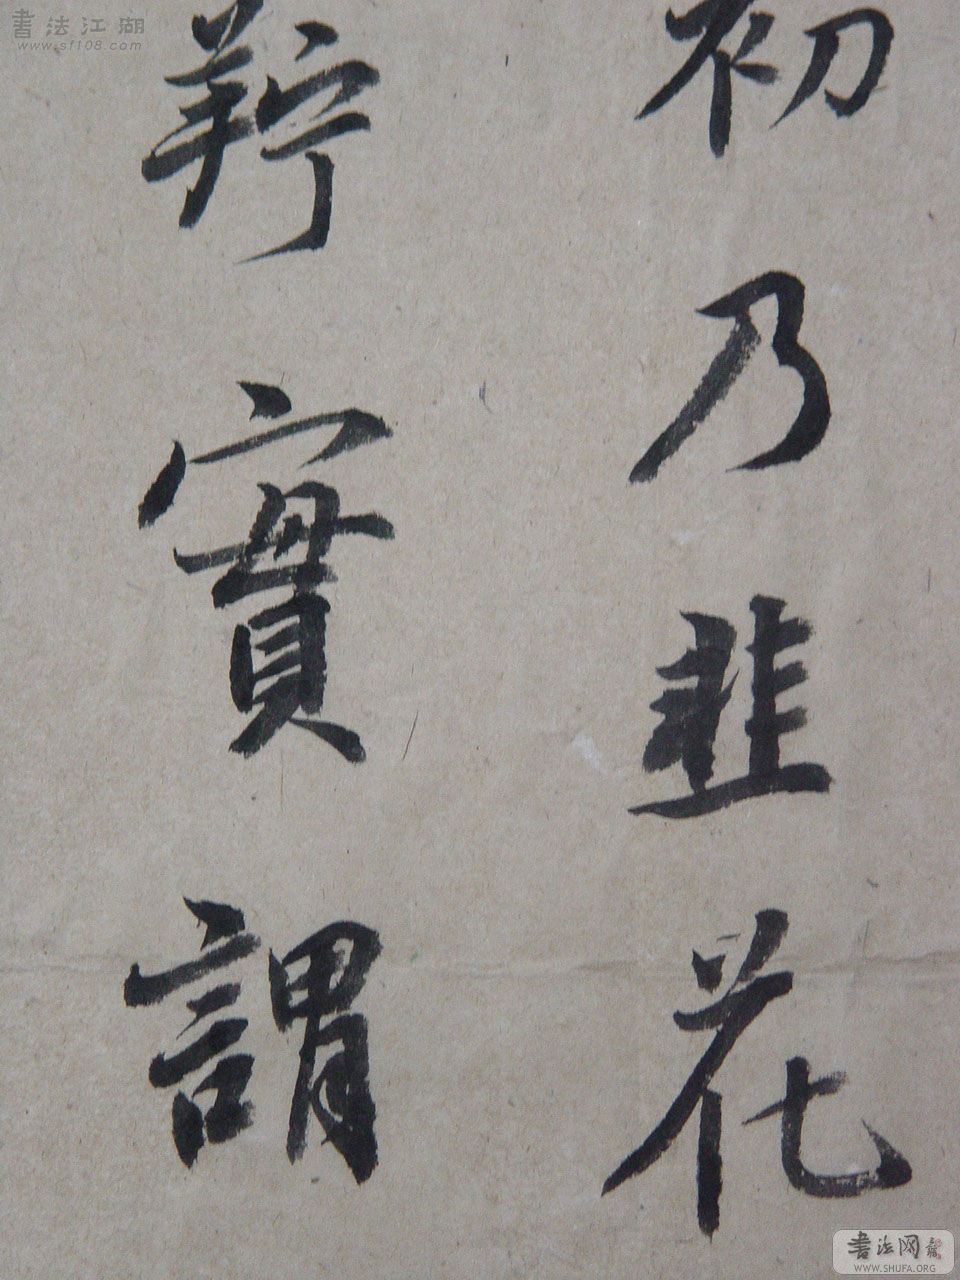 初乃韭花
羜實謂
書法江湖
www.sf108.com
書法网
WWW.SHUFA.ORG